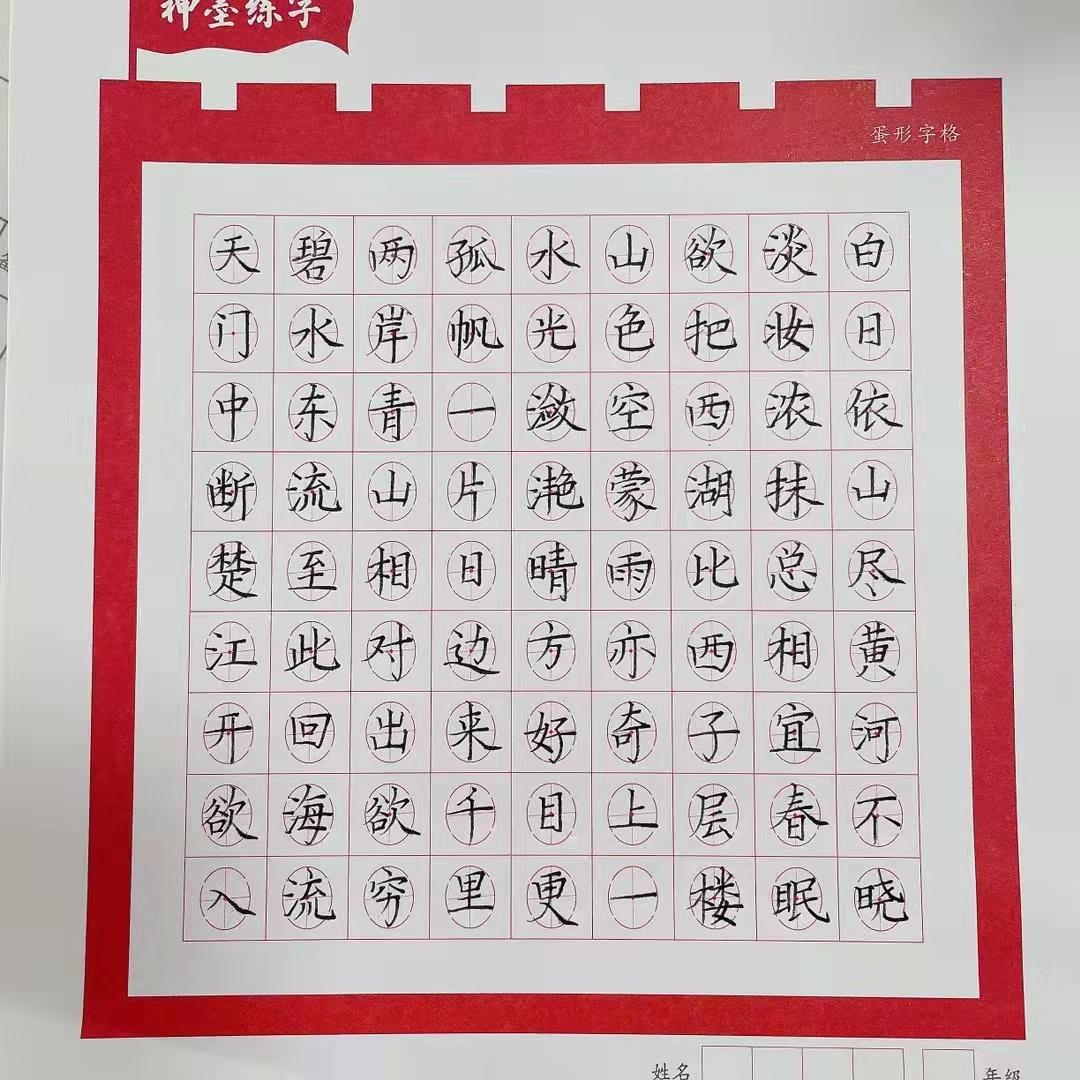 神墨练字
蛋形字格
天门中断楚江开欲入
碧水东流至此回海流
两岸青山相对出欲穷
孤帆一片日边来千里
水光潋滟晴方好目更
山色空蒙雨亦奇上一
欲把西湖比西子层楼
淡妆浓抹总相宜春眠
白日依山尽黄河不晓
姓名 年级